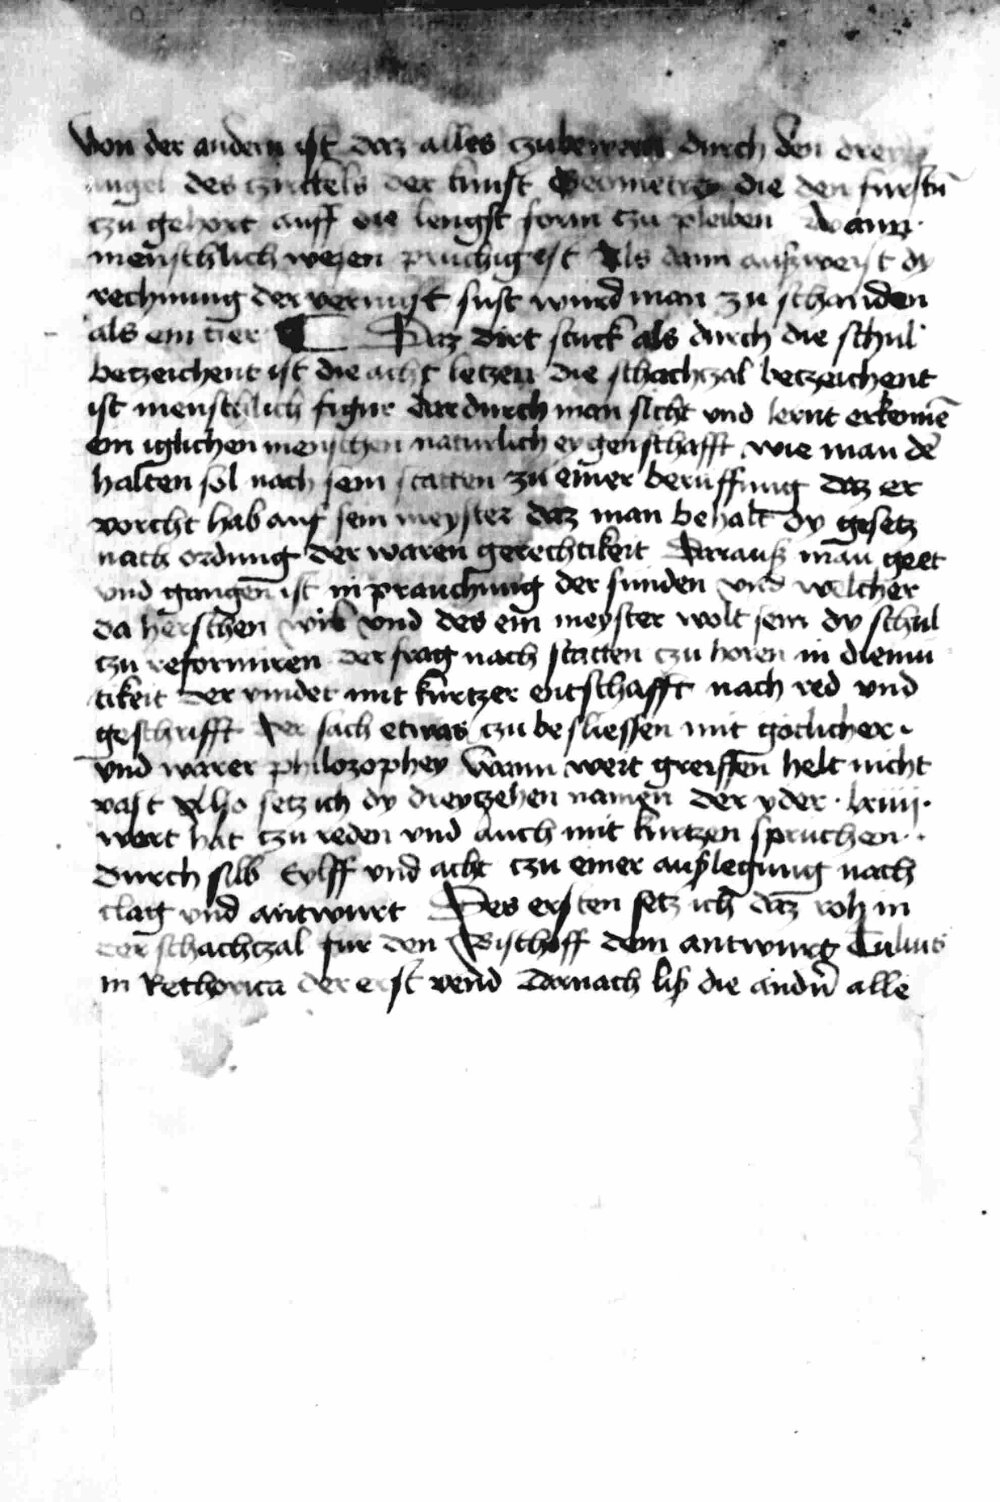 Von der andern ist daz alles czubeweren durch den drey
angel des czirttels der kunst Geometrey die den furstn̄
czu gehort auff die lengst form czu pleiben Wann
menschlich wesen pruchig ist Als dann außweist dy
rechnung der vernuft sust wurd man zu schanden
als ein tier Daz dirt stuck als durch die schul
betzeichent ist die acht letzen die schachzal betzeichent
ist menschlich figur dardurch man sicht vnd lernt erkomē
ein iglichen menschen naturlich eygenschafft wie man dē
halten sol nach sein statten zu einer beruffung daz er
vorcht hab auf sein meyster daz man behalt dy gesetz
nach ordung der waren gerechtikeit Darauß man geet
vnd gangen ist in prauchung der sunden vnd welcher
da herschen wil vnd des ein meyster wolt sein dy schul
czu reformiren der frag nach statten czu horen in diemu
tikeit der vindet mit kurtzer eitschafft nach red vnd
geschrifft der sach etwas czu besliessen mit gotlicher
vnd warer philozophey Wann weit greiffen helt nicht
vast Also setz ich dy dreytzehen namen der yder · lxiiij ·
wort hat czu reden vnd auch mit kurtzen spruchen ·
durch silb Eylff vnd acht czu einer außlegung nach
clag vnd antwurt Des ersten setz ich daz roh in
der schachczal fur den Bischoff dem antwurt Tulius
in Rethorica der erst vend Darnach liß die andn̄ alle